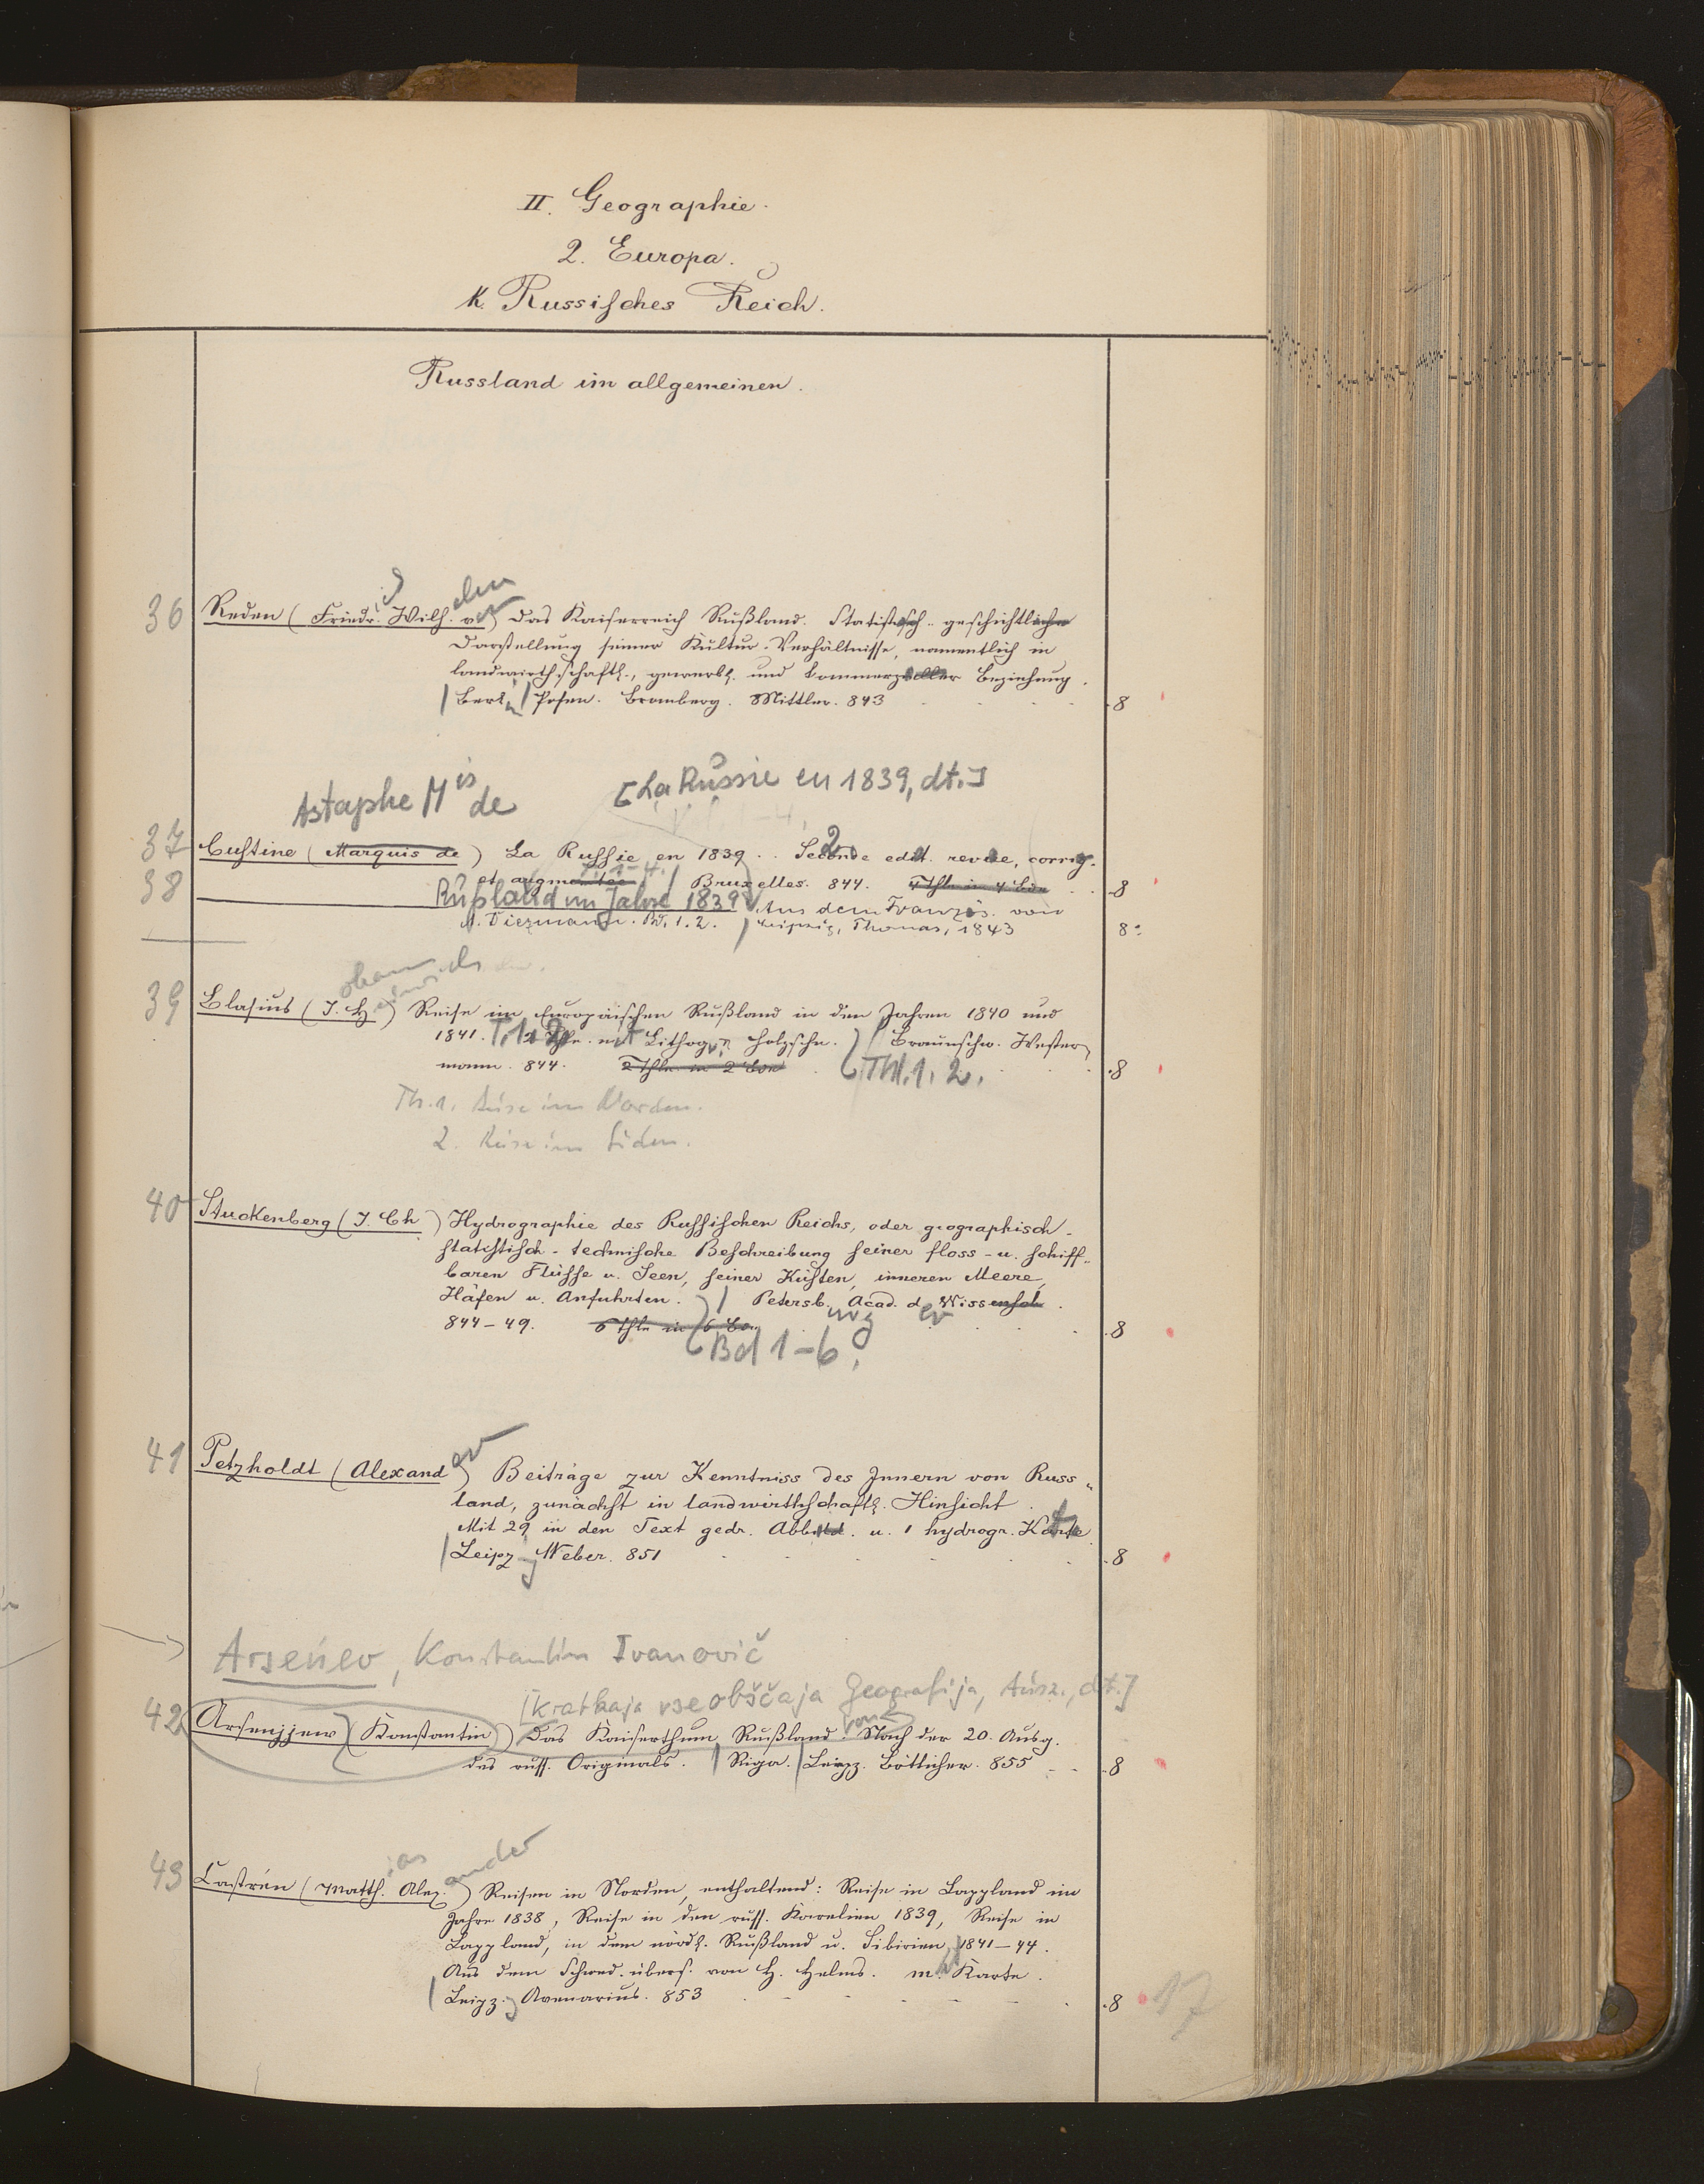 II. Geographie.
2. Europa.
k. Russisches Reich.
Russland im allgemeinen.
36 Reden (Friedr. Wilh. v.) Das Kaiserreich Rußland. Statistisch-geschichtliche
Darstellung seiner Kultur-Verhältnisse, namentlich in
landwirthschaftl., gewerbl. und Commerzieller Beziehung.
Berlin Posen. Bromberg. Mittler. 843 8
Astaphe Mis de [La Russie en 1839, dt.]
37 Custine (Marquis de) La Russie en 1839. Seconde edit. revue, corrig.
et augmentée. Bruxelles. 844. 4 Thle in 4 Bdn 8
38 Rußland im Jahre 1839 Aus dem Französ. von
A. Diezmann. Bd. 1.2. Leipzig, Thomas, 1843 8°
39 Blasius (J. H.) Reise im Europäischen Rußland in den Jahren 1840 und
1841. T. 1. 2. mit Lithogr. u. Holzschn. Braunschw. Wester
mann. 844. 2 Thle in 2 Bdn Thl. 1. 2. 8
Th. 1. Reise im Norden.
2. Reise im Süden.
40 Stuckenberg (J. Ch) Hydrographie des Russischen Reichs, oder geographisch-
statistisch-technische Beschreibung seiner floss- u. schiff-
baren Flüsse u. Seen, seiner Küsten, inneren Meere,
Häfen u. Anfuhrten. Petersb. Acad. d. Wissensch.
844-49. 6 Thle in 6 Bdn 8
Bd 1-6.
41 Petzholdt (Alexander) Beiträge zur Kenntniss des Innern von Russ-
land, zunächst in landwirthschaftl. Hinsicht.
Mit 29 in den Text gedr. Abbild. u. 1 hydrogr. Karte
Leipz. Weber. 851 8
Arseńev, Konstantin Ivanovič
[Kratkaja vseobščaja Geografija, Ausz., dt.]
42 Arsenjjew (Konstantin) Das Kaiserthum Rußland. Nach der 20. Ausg.
des russ. Originals. Riga. Leipz. Bötticher. 855 8
43 Castrén (Matth. Alex.) Reisen in Norden, enthaltend: Reise in Lappland im
Jahre 1838, Reise in den russ. Karelien 1839, Reise in
Lappland, in dem nördl. Rußland u. Sibirien, 1841-44.
Aus dem Schwed. übers. von H. Helms. m. Karte.
Leipz. Avenarius. 853 8
17